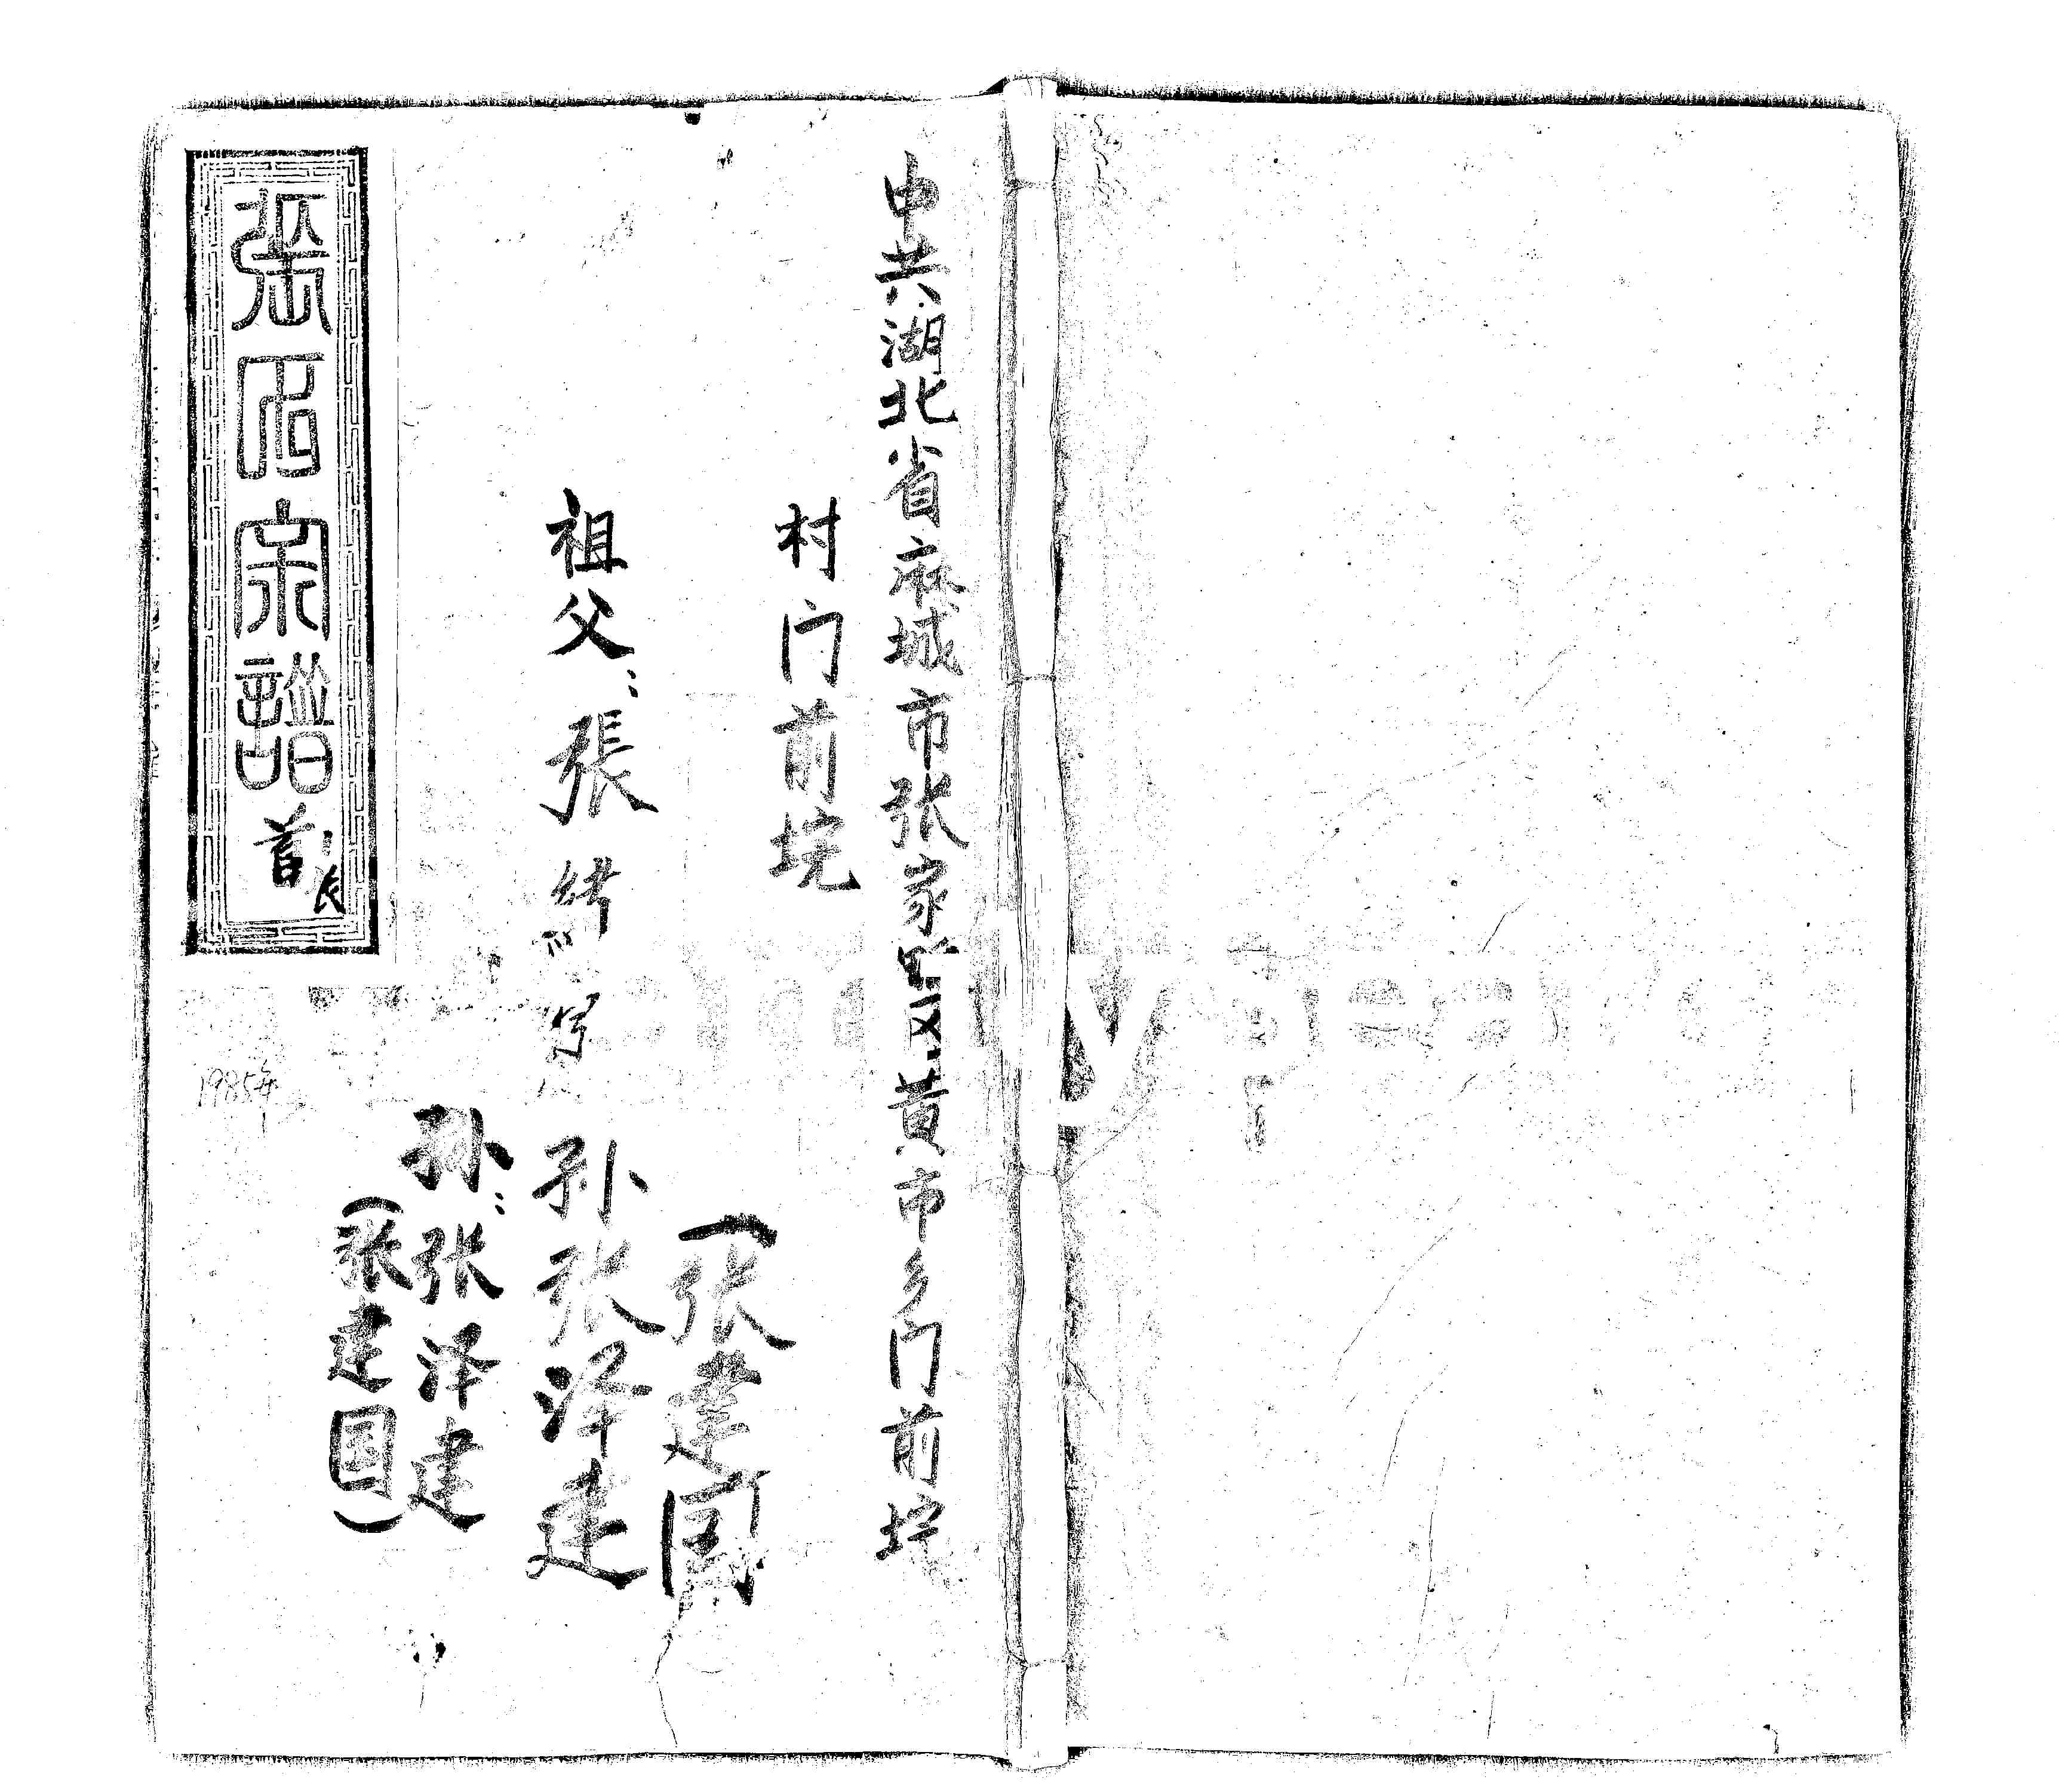 中共湖北省麻城市张家畈区黄市乡门前垸
村门前垸
(张建国
祖父：張绪
孙张泽建
孙：张泽建
(张建国)
張氏宗譜
首
1985年